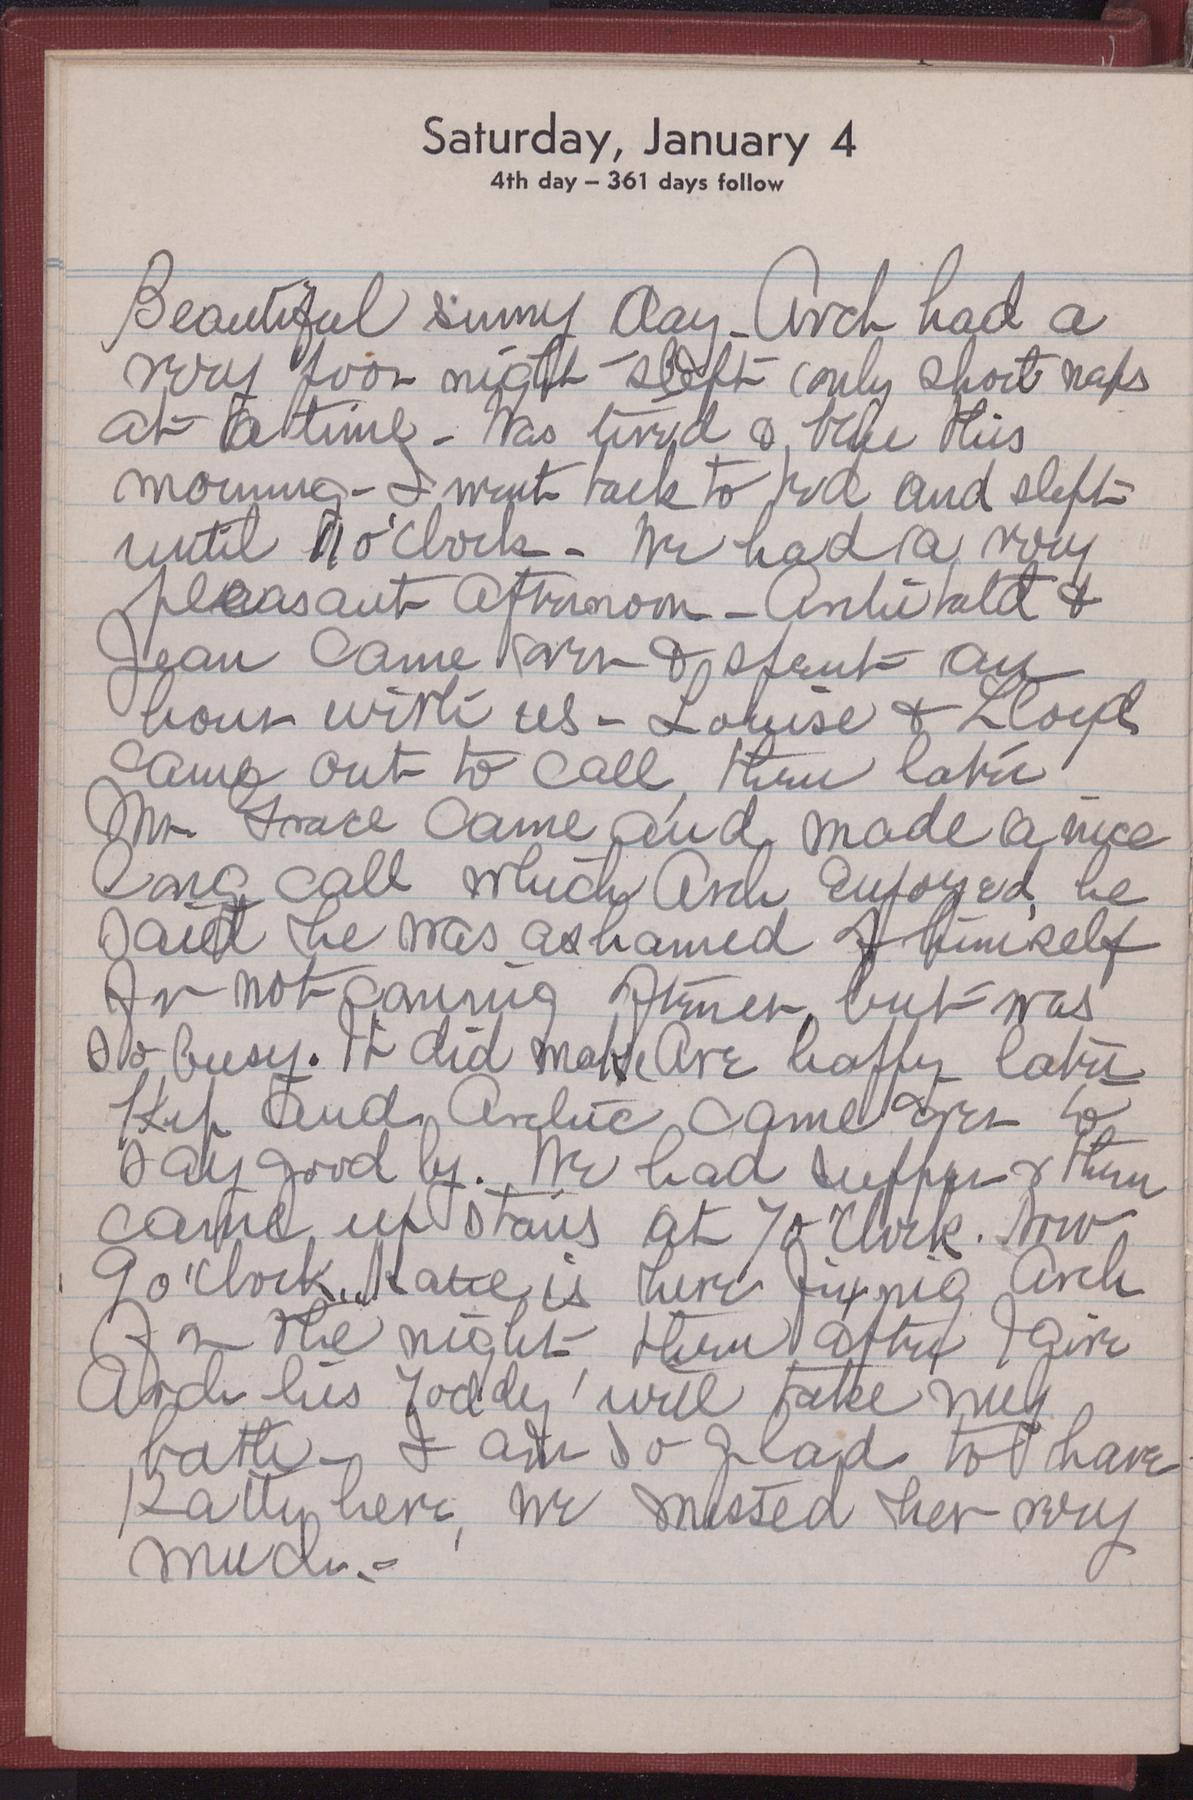 Saturday, January 4
4th day – 361 days follow
Beautiful sunny day – Arch had a
very poor night – slept only short naps
at a time – Was tired & blue this
morning – I went back to bed and slept
until 11 o'clock – We had a very
pleasant afternoon – Archibald &
Jean came over & spent an
hour with us – Louise & Lloyd
came out to call, then later
Mr Grace came and made a nice
long call which Arch enjoyed, he
said he was ashamed of himself
for not coming oftener, but was
so busy. It did make Arc happy later
Kip and Archie came over to
say good by. We had supper & then
came up stairs at 7 o'clock. Now
9 o'clock. Katie is here fixing Arch
for the night then after I give
Arch his Toddy I will take my
bath – I am so glad to have
Katty here, we missed her very
much. –